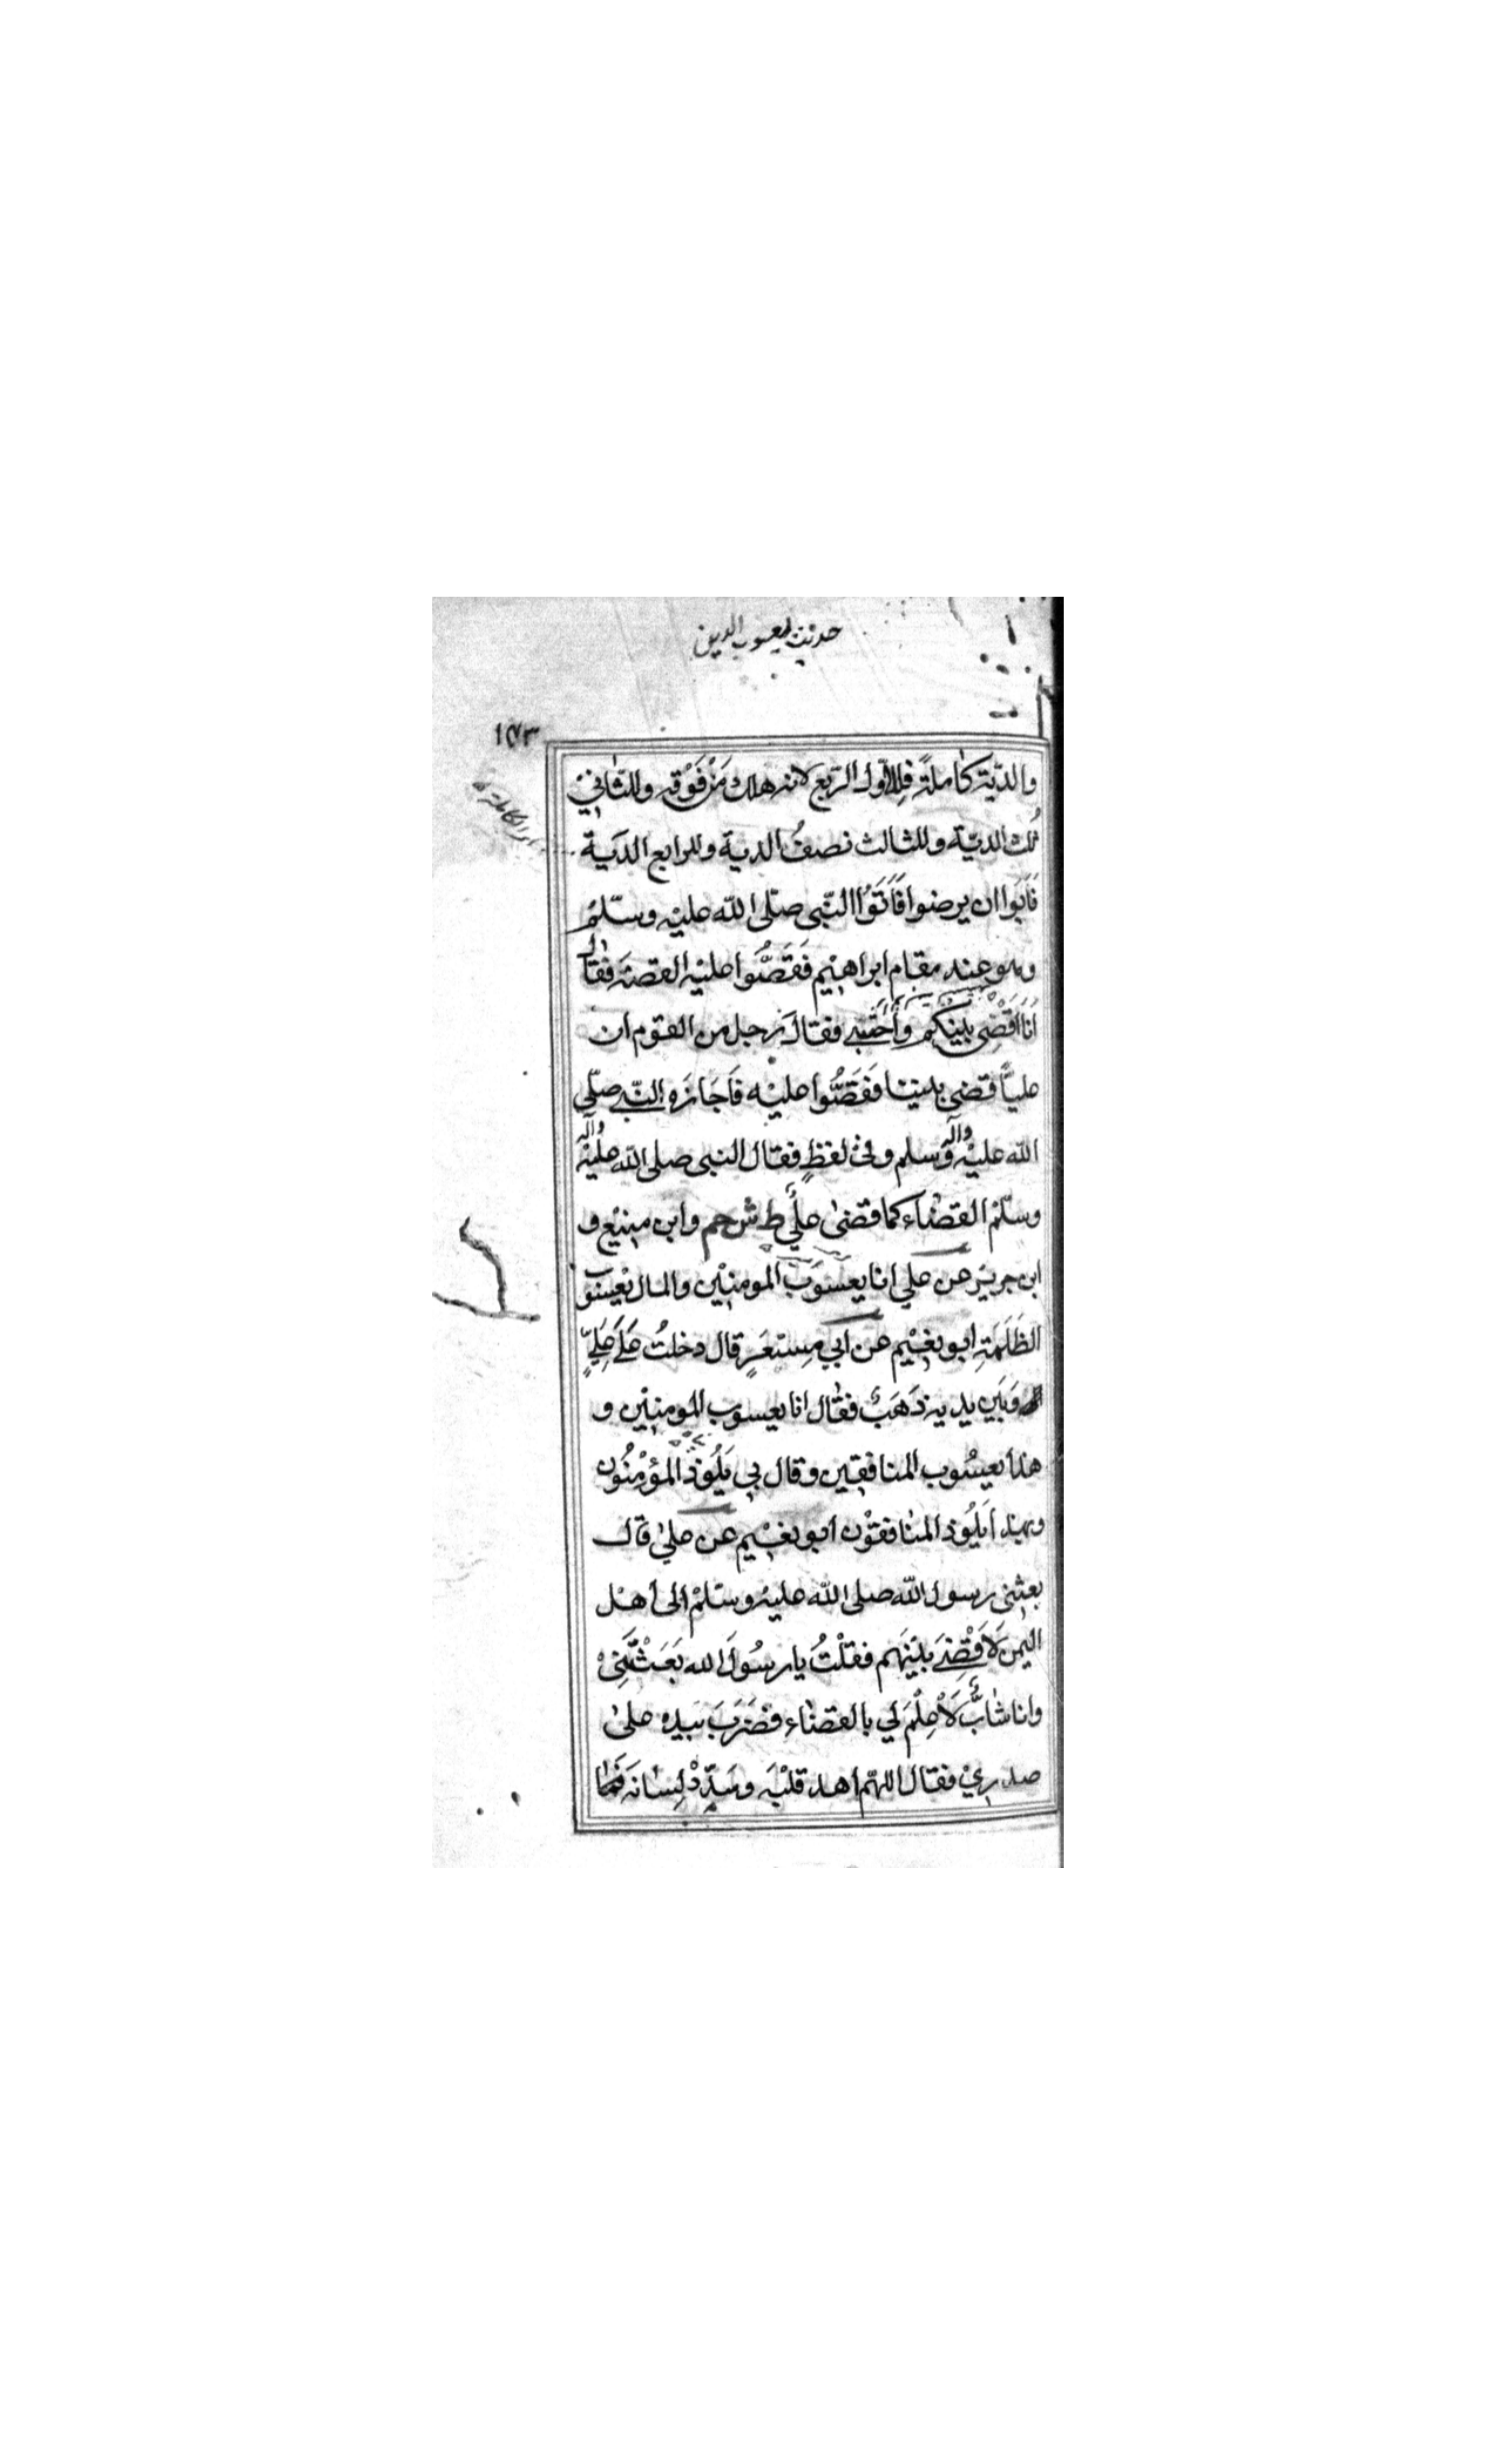 حديث يعسوب الدين
١٧٣
والدّية كاملةً فللاوّل الرّبع لانه هلك مَنْ فَوْقه وللثاني
ثلث الديّة وللثالث نصفُ الدية وللرابع الدّية
الكاملة
فَاَبَوا ان يرضوا فَاَتَوُا النّبى صلّى اللّه عليْه وسلّم
وهو عند مقام ابراهيْم فَقَصُّوا عليْه القصّة فقال
اَنَا اَقْضِى بينَكم وَاَحْتَبى فقال رجل من القوم ان
عليًّا قضى بيننا فَقَصُّوا عليْه فَاَجَازَه النّبى صلّى
اللّه عليْه وآله وسلم وفى لفظٍ فقال النبى صلى اللّه عليْه وآله
وسلّمْ القضاء كما قضىٰ علىٌّ ط ش حم وابن منيع و
ابن جرير عن على انا يعسوَب المومنيْن والمال يعْسوب
الظَلَمَةِ ابو نعيْم عن ابي مِسعَرٍ قال دخلتُ عَلَى عَلِيٍّ
وَبَيْن يديه ذَهَبٌ فقال انا يعسوب المومنيْن و
هذا يعسُوب المنافقين وقال بي يَلُوذُ المؤمِنُون
وبهذا يَلُوذ المنافقوْن ابو نعيْم عن علىٰ قال
بعثنى رسول اللّه صلى اللّه عليْه وسلمْ الى اهل
اليمن لاَقْضِىَ بيْنَهم فقلْتُ يا رسُولَ الله بَعَثْتَنِىْ
وانا شَابٌّ لاَ عِلْمَ لي بالقضاء فضَرَبَ بيده علىٰ
صدري فقال اللهّم اهد قلبَه وسَدِّدْ لِسانَه فما